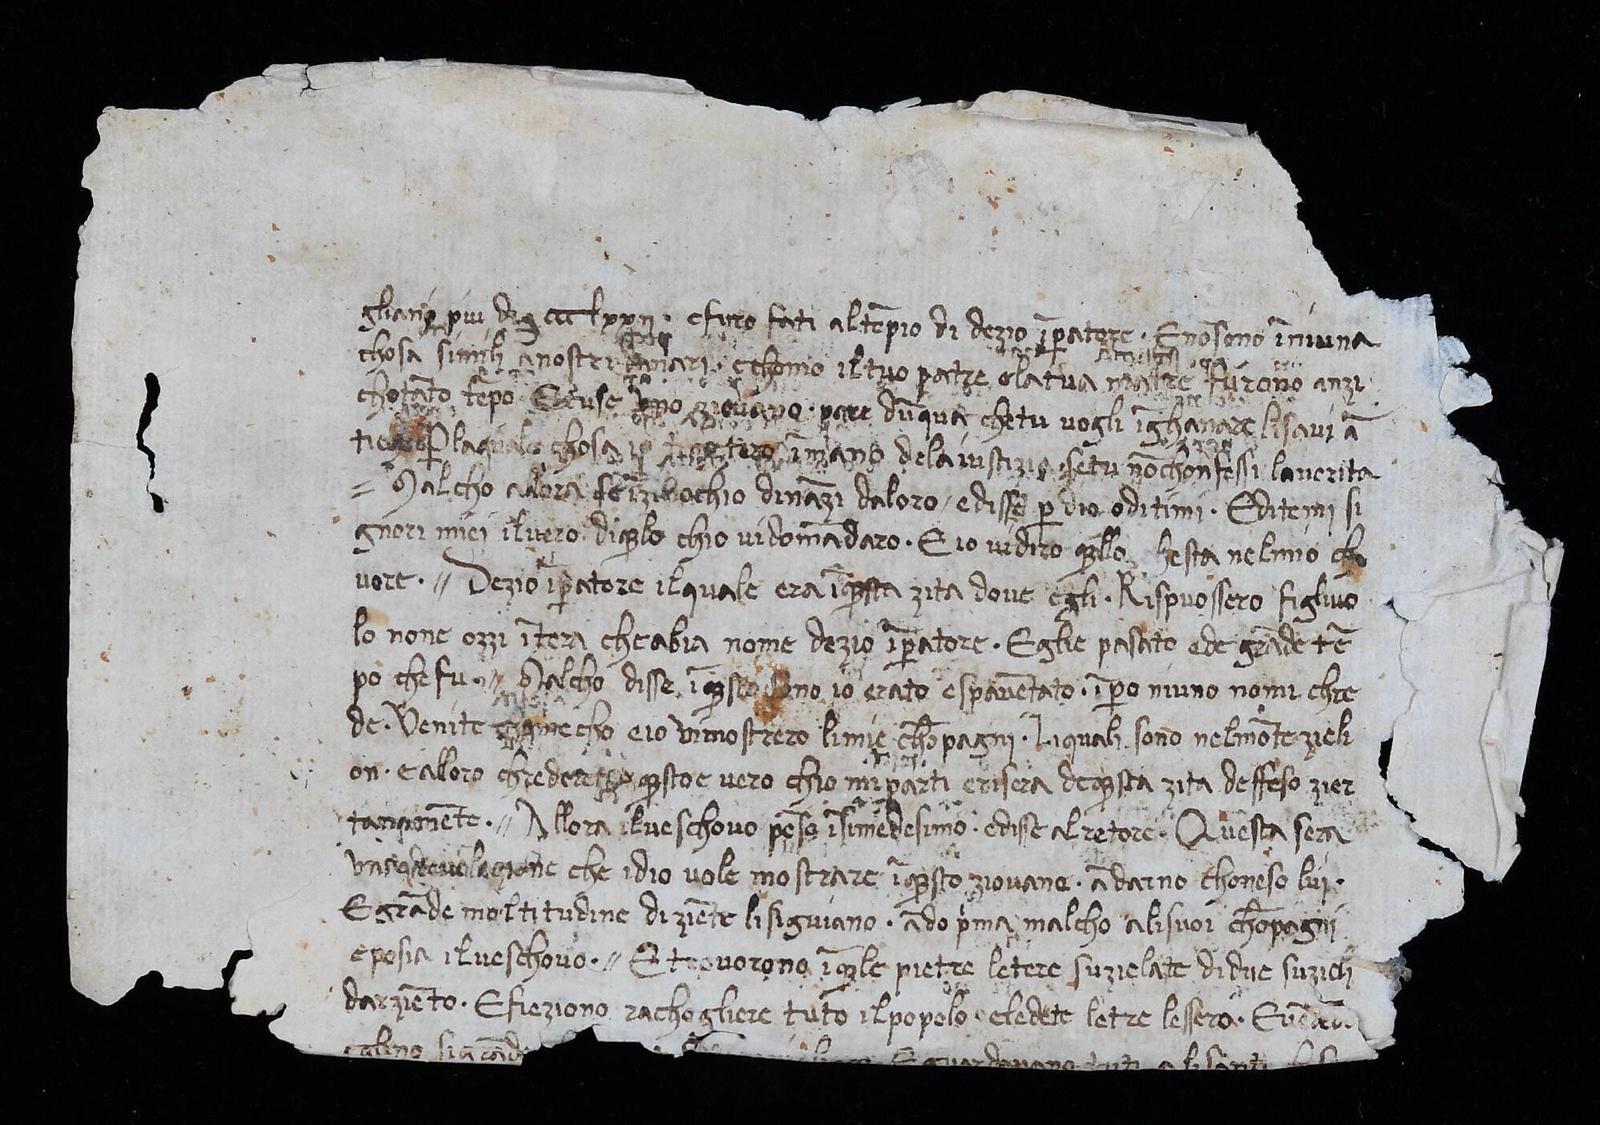 gliani piu di ccclxxii · efuro fati altēpio di dezio īpatore · Enōsono īniuna
chosa simili anostri danari · echomo iltuo patre elatua matre furono anzi
chotāto tēpo · Etuse ziovano · pare dūqua chetu vogli īghanare lisavi ā
tichi Plaquale chosa īmano dela iustizia · setu nōchonfessi lauerita
= Malcho allora seīzinochio dināzi daloro / edisse p dio oditimi · Editemi si
gnori miei iluero diqllo chio uidomādaro · E io uidiro qllo chesta nelmio cho
uore · // Dezio īpatore ilquale era īqsta zita dove egli · Rispuossero figliuo
lo none ozzi ītera cheabia nome dezio īpatore · Eglie pasato ede grāde tē
po chefu · // Malcho disse īqsto sono io erato espauētato · īpo niuno nomi chre
de · Venite mecho eio vimostrero limie chōpagni · Liquali sono nelmōte zieli
on · ealloro chrederete qstoe vero chio miparti erisera deqsta zita deffeso zier
tanamēte · // Allora ilueschouo pēso īsimedesimo · edisse alretore · Questa sera
una revelazione che idio vole mostrare īqsto ziouano · ādarno choneso lui ·
Egrāde moltitudine di ziēte lisiguiano · ādo pma malcho alisuoi chōpagni
eposia ilueschouo · // Etrovorono īqle pietre letere suzielate didue suzieli
darziēto · Efieziono rachogliere tuto ilpopolo eledete letre lessero ·